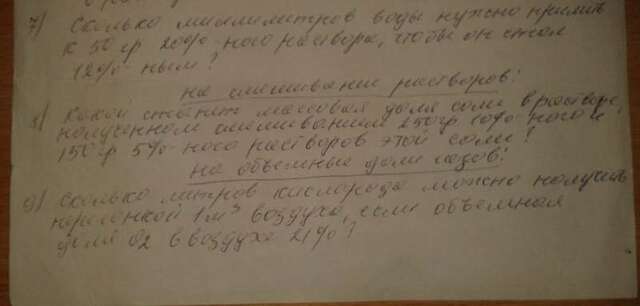 7) Сколько миллилитров воды нужно прилить
к 50 гр 20%-ного раствора, чтобы он стал
12%-ным?
на смешивание растворов:
8) Какой станет массовая доля соли в растворе,
полученном смешиванием 250гр 10%-ного и
150гр 5%-ного растворов этой соли?
На объемные доли газов:
9) Сколько литров кислорода можно получить
перегонкой 1м³ воздуха, если объемная
доля O2 в воздухе 21%?